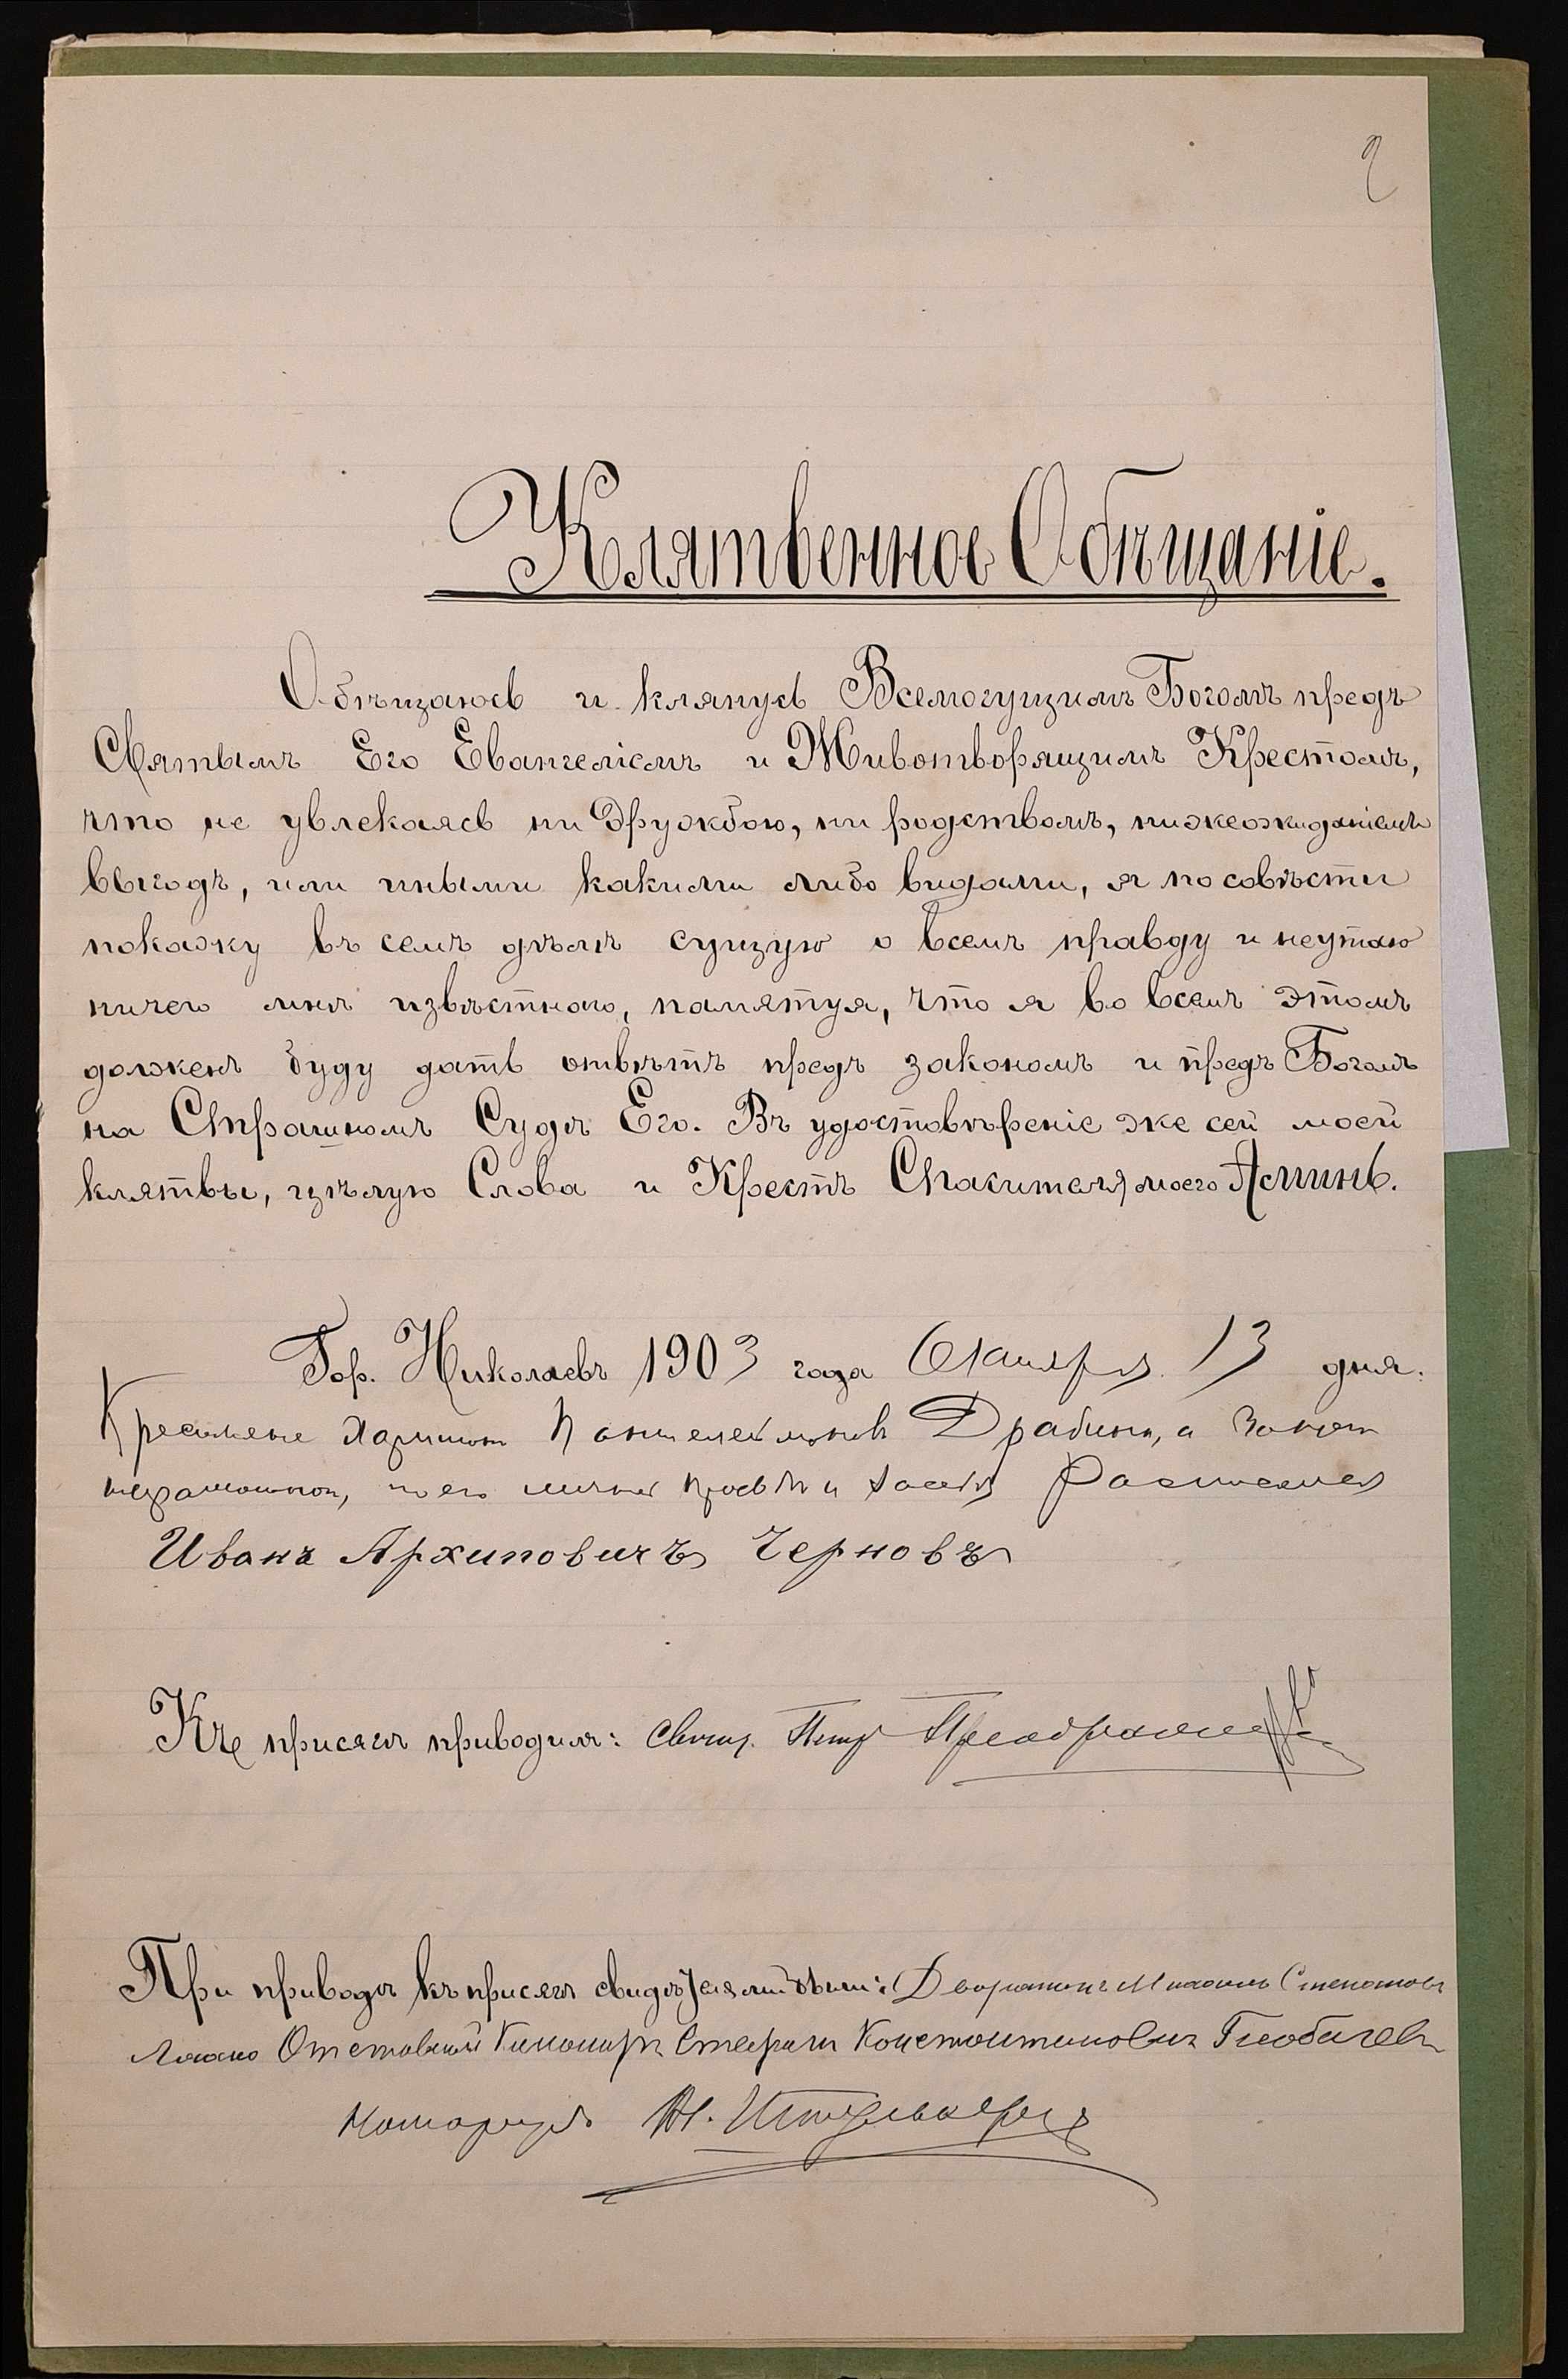 2
Клятвенное Обѣщаніе.
Обѣщаюсь и клянусь Всемогущимъ Богомъ предъ
Святымъ Его Евангеліемъ и Животворящимъ Крестомъ,
что не увлекаясь ни дружбою, ни родствомъ, ниже ожиданіемъ
выгодъ, или иными какими либо видами, я по совѣсти
покажу въ семъ дѣлѣ сущую о всемъ правду и неутаю
ничего мнѣ извѣстнаго, памятуя, что я во всемъ этомъ
долженъ буду дать отвѣтъ предъ закономъ и предъ Богомъ
на Страшномъ Судѣ Его. Въ удостовѣреніе же сей моей
клятвы, цѣлую Слова и Крестъ Спасителя моего Аминь.
Гор. Николаевъ 1903 года Октября 13 дня.
Драбина, а
неграмотной, по его личной просьбѣ и
Иванъ Архиповичъ Черновъ
Къ присягѣ приводилъ: Свящ. Петръ
При приводѣ къ присягѣ свидѣтелями были: Дворянинъ Михаилъ Степановъ
Отставной Константиновичъ
Нотаріусъ